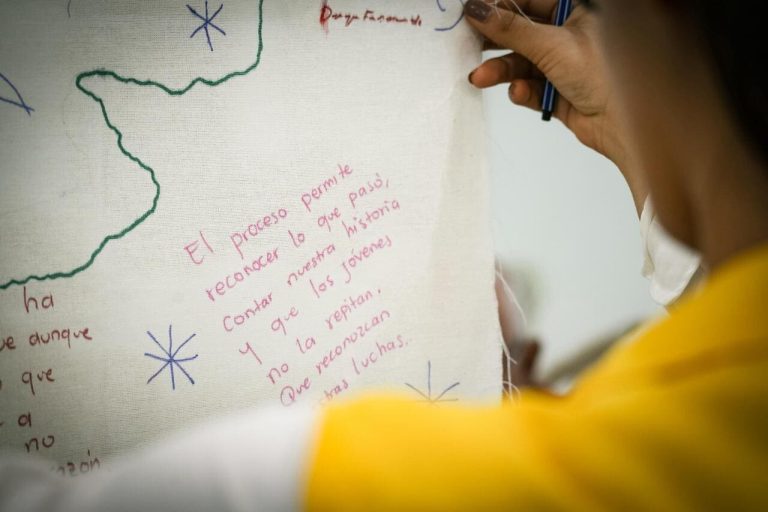 El proceso permite
reconocer lo que pasó,
contar nuestra historia
y que los jóvenes
no la repitan.
Que reconozcan
tras luchas..
ha
ue aunque
que
a
no